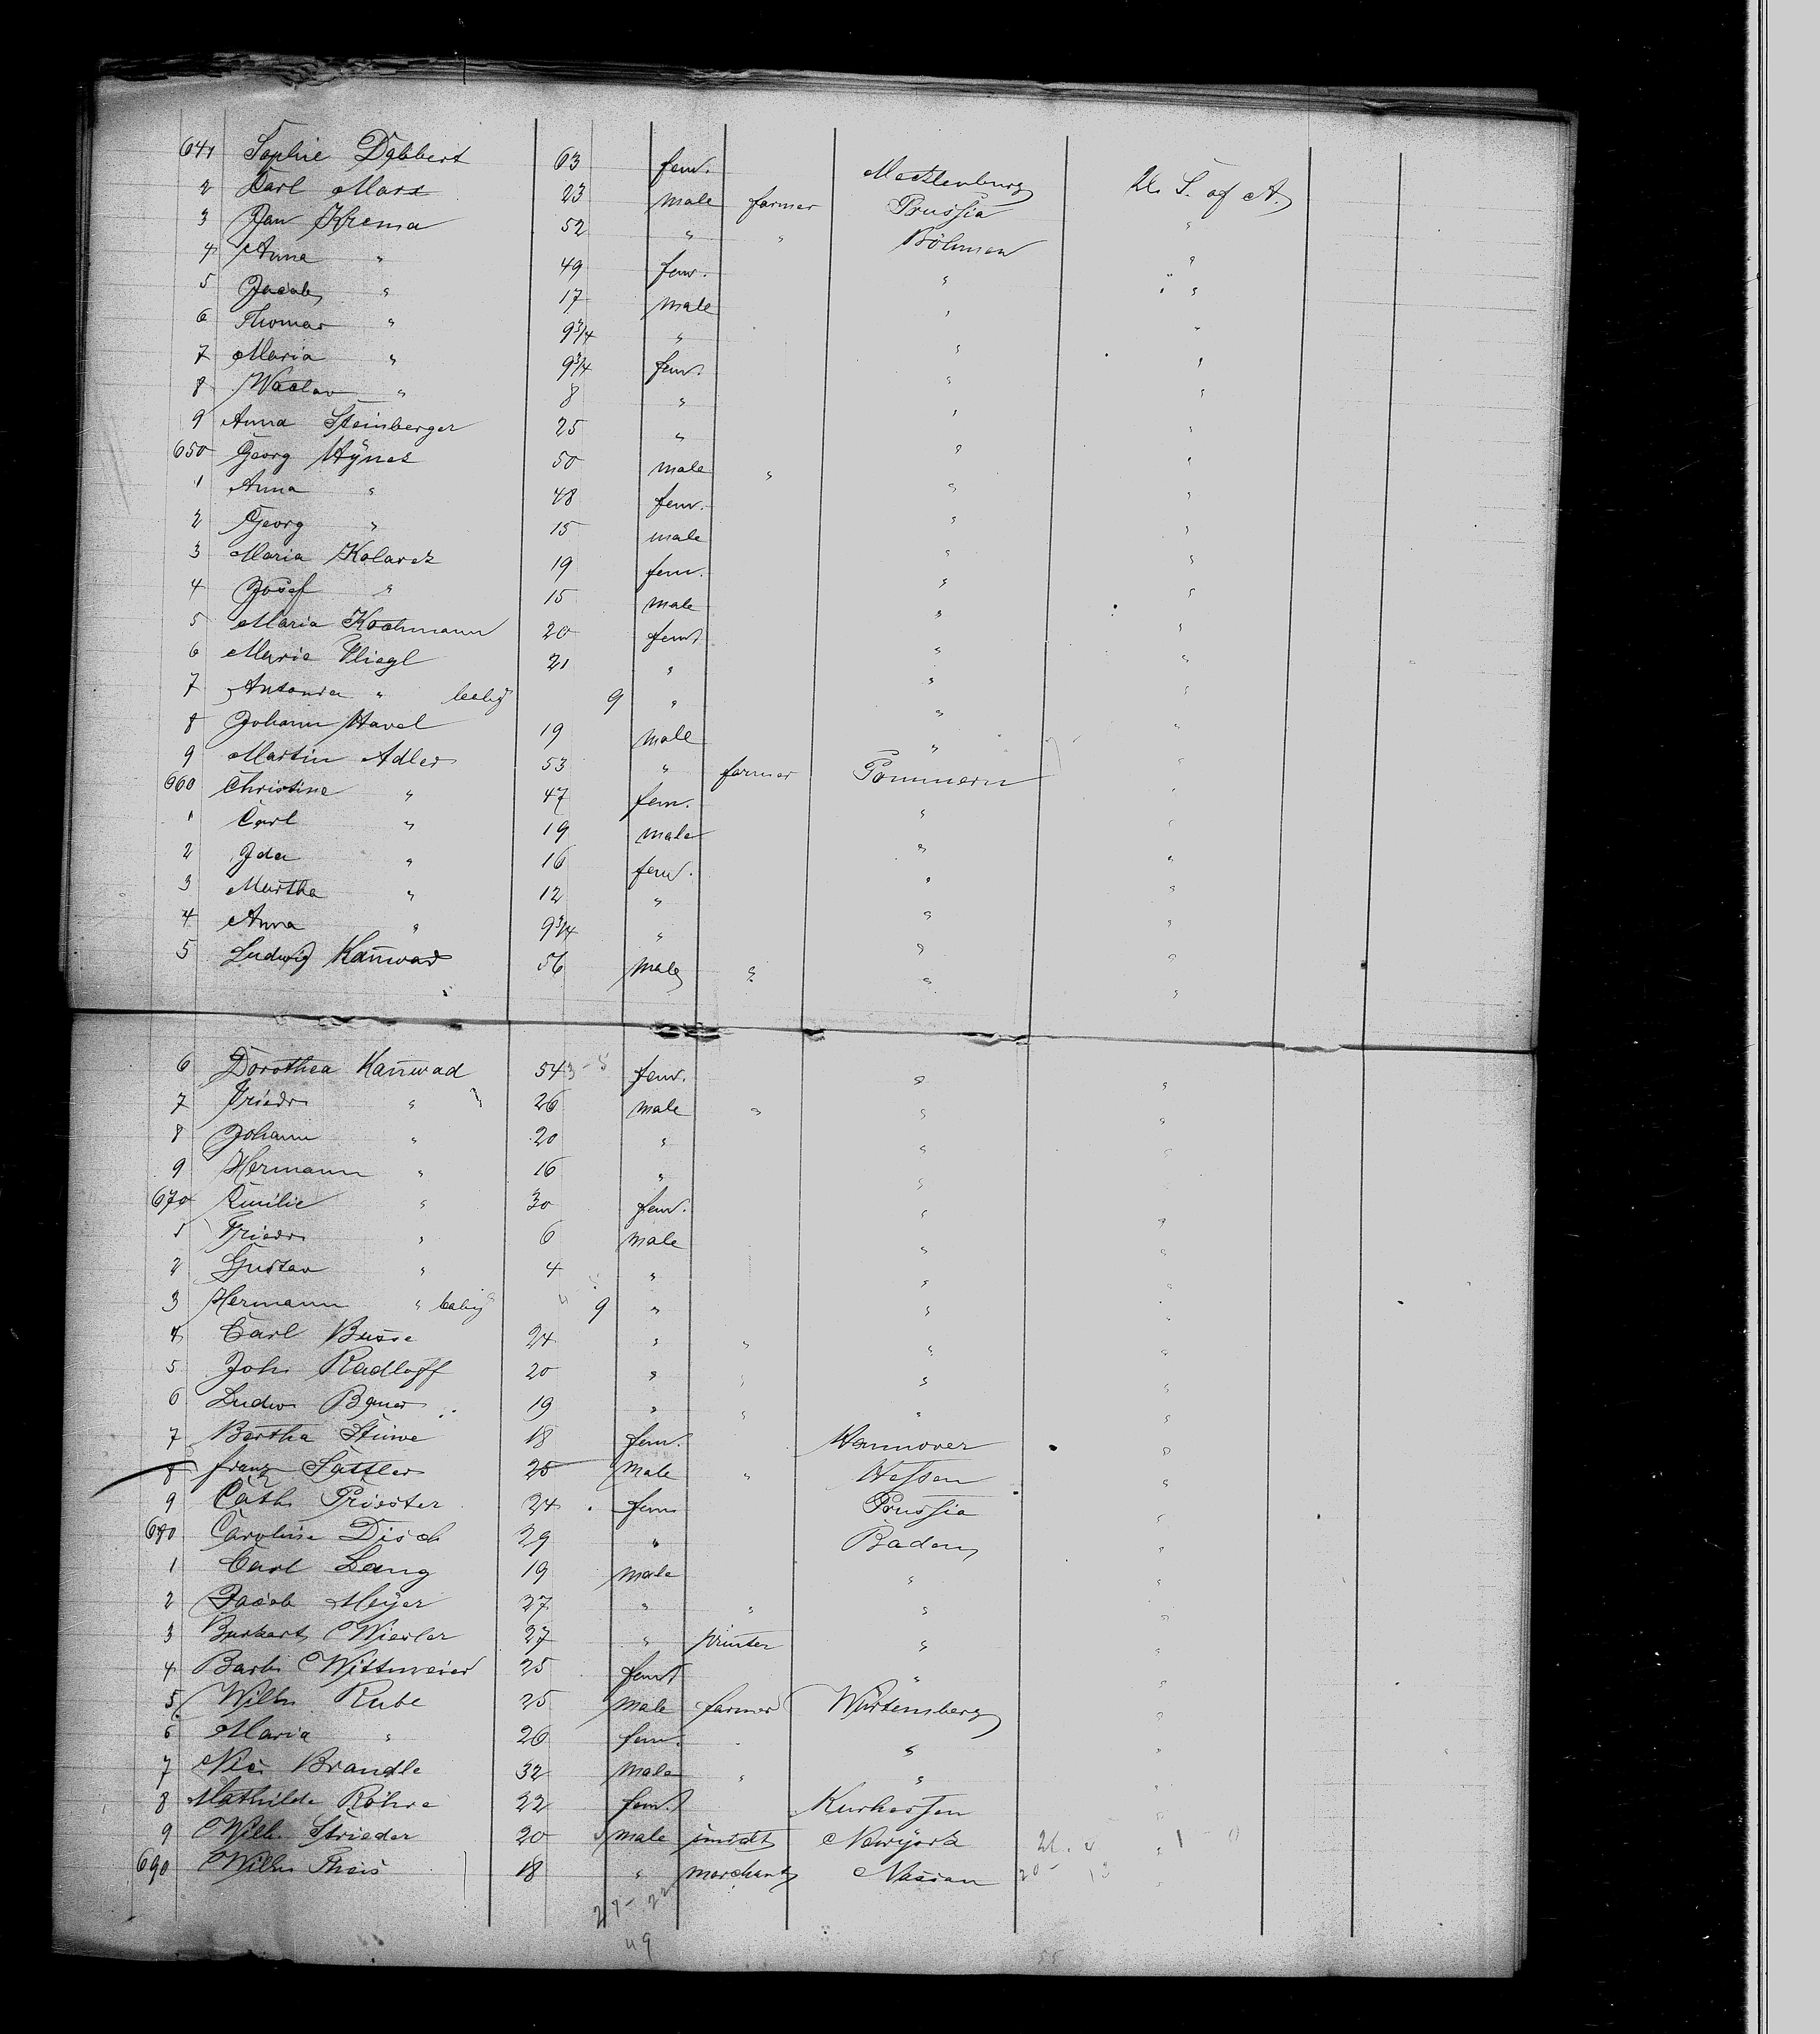 641 Sophie Dabbert 63 fem. Mecklenburg U. S. of A.
2 Carl Marx 23 male farmer Prussia "
3 Jan Krema 52 " " Böhmen "
4 Anna " 49 fem. " "
5 Jacob " 17 male " "
6 Thomas " 9 3/4 " " "
7 Maria " 9 3/4 fem. " "
8 Waclav " 8 " " "
9 Anna Steinberger 25 " " "
650 Georg Hynek 50 male " " "
1 Anna " 48 fem. " "
2 Georg " 15 male " "
3 Maria Kolarek 19 fem. " "
4 Josef " 15 male " "
5 Maria Kochmann 20 fem. " "
6 Marie Fliegl 21 " " "
7 Antonia " baby 9 " " "
8 Johann Havel 19 male " "
9 Martin Adler 53 " farmer Pommern "
660 Christine " 47 fem. " "
1 Carl " 19 male " "
2 Ida " 16 fem. " "
3 Martha " 12 " " "
4 Anna " 9 3/4 " " "
5 Ludwig Kanwad 56 male " " "
6 Dorothea Kanwad 54 fem. " "
7 Friedr " 26 male " " "
8 Johann " 20 " "
9 Hermann " 16 " "
670 Emilie " 30 fem. " "
1 Friedr " 6 male " "
2 Gustav " 4 " " "
3 Hermann " baby 9 " " "
4 Carl Busse 24 " " " "
5 Joh. Radloff 20 " " " "
6 Ludw. 19 " " " "
7 Bertha Stüwe 18 fem. Hannover "
8 Franz Sattler 25 male " Hessen "
9 Cath. Priester 24 fem Prussia "
680 Caroline Disch 29 " Baden "
1 Carl Lang 19 male " "
2 Jacob Meyer 27 " " " "
3 Burkart Wiesler 27 " printer " "
4 Barb. Wittmeier 25 fem. " "
5 Wilh. Rube 25 male farmer Würtemberg "
6 Maria " 26 fem. " "
7 Nic. Brandle 32 male " " "
8 Mathilde Röhre 22 fem. Kurhessen "
9 Wilh. Strieder 20 male smidt Newyork "
690 Wilh. Theis 18 " merchant Nassau "
27 - 22
49